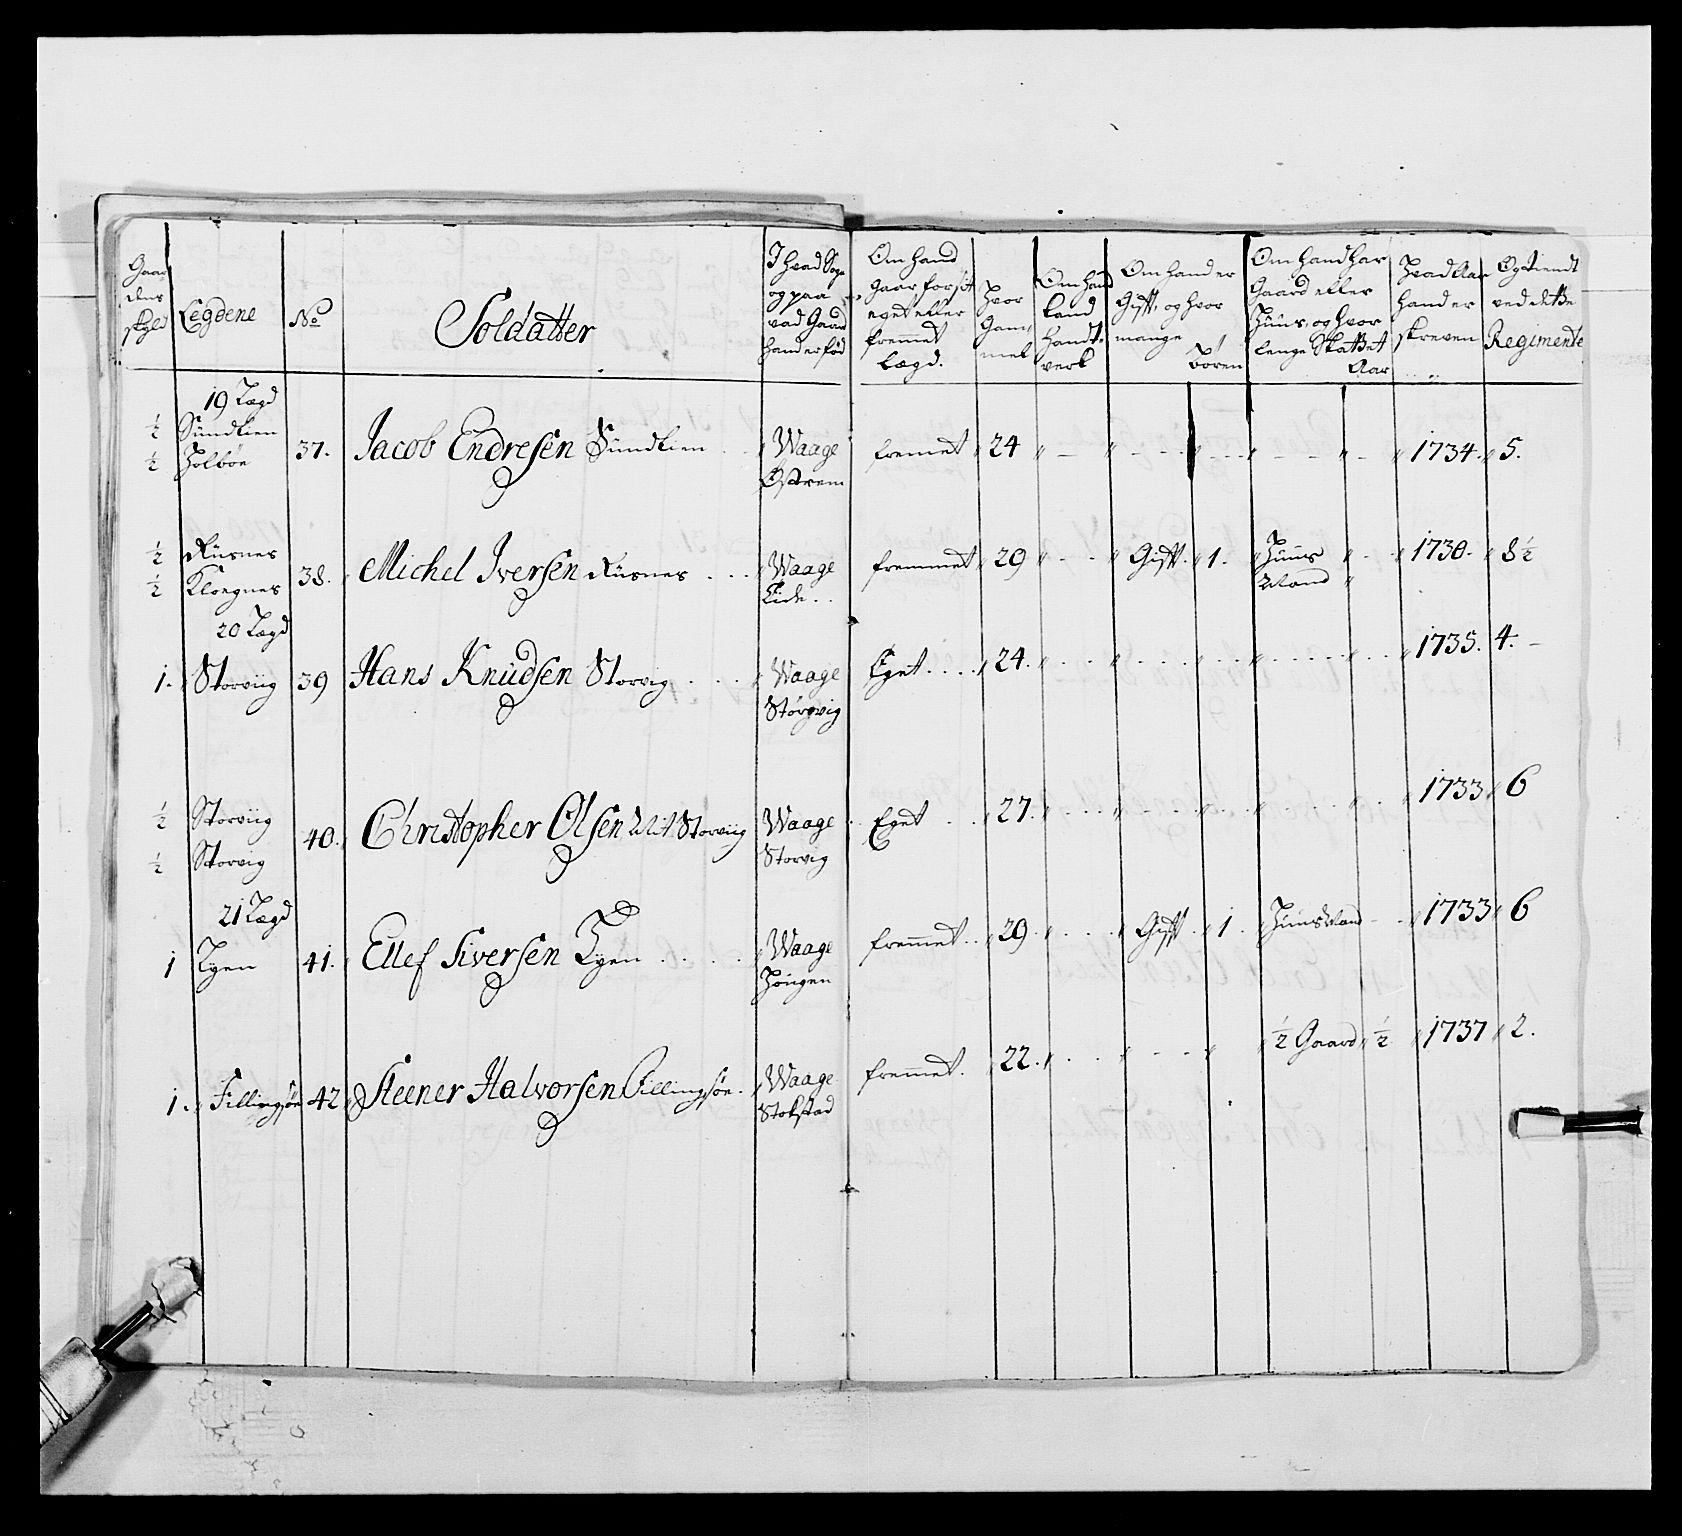 Gaar dens skyld | Legdene | No | Soldatter | I hvad Sogn og paa vad Gaard hand er fød | Om hand gaar for sit eget eller fremet Lægd. | Hvor Gam mel | Om hand kand Handt verk | Om hand er Gift, og hvor mange børen | Om hand har Gaard eller Huus, og hvor lenge Skattet Aar | Hvad Aar hand er skreven | Og tiendt ved dette Regimente
19 Lægd
½ Sundlien
½ Holbøe | 37. | Jacob Endresen Sundlien | Waage Østrem | fremet | 24 | 1734. | 5.
½ Rüsnes
½ Kloegnes | 38. | Michel Iversen Rüsnes | Waage Eide | fremmet | 29 | Gift. | 1. | Huus Mand | 1730. | 8½
20 Lægd
1. Storviig | 39 | Hans Knüdsen Storvig | Waage Størgvig | Eget | 24. | 1735. | 4.
½ Storviig
½ Storvig | 40. | Christopher Olsen Storviig | Waage Storvig | Eget | 27. | 1733 | 6
21 Lægd
1 Lyen | 41. | Ellef Siversen Lyen | Waage Høigen | fremmet | 29 | Gift | 1. | Huus Mand | 1733 | 6
1. Fillingsøe | 42 | Steener Halvorsen Fillingsøe. | Waage Stokstad | fremmet. | 22. | ½ Gaard | ½ | 1737 | 2.